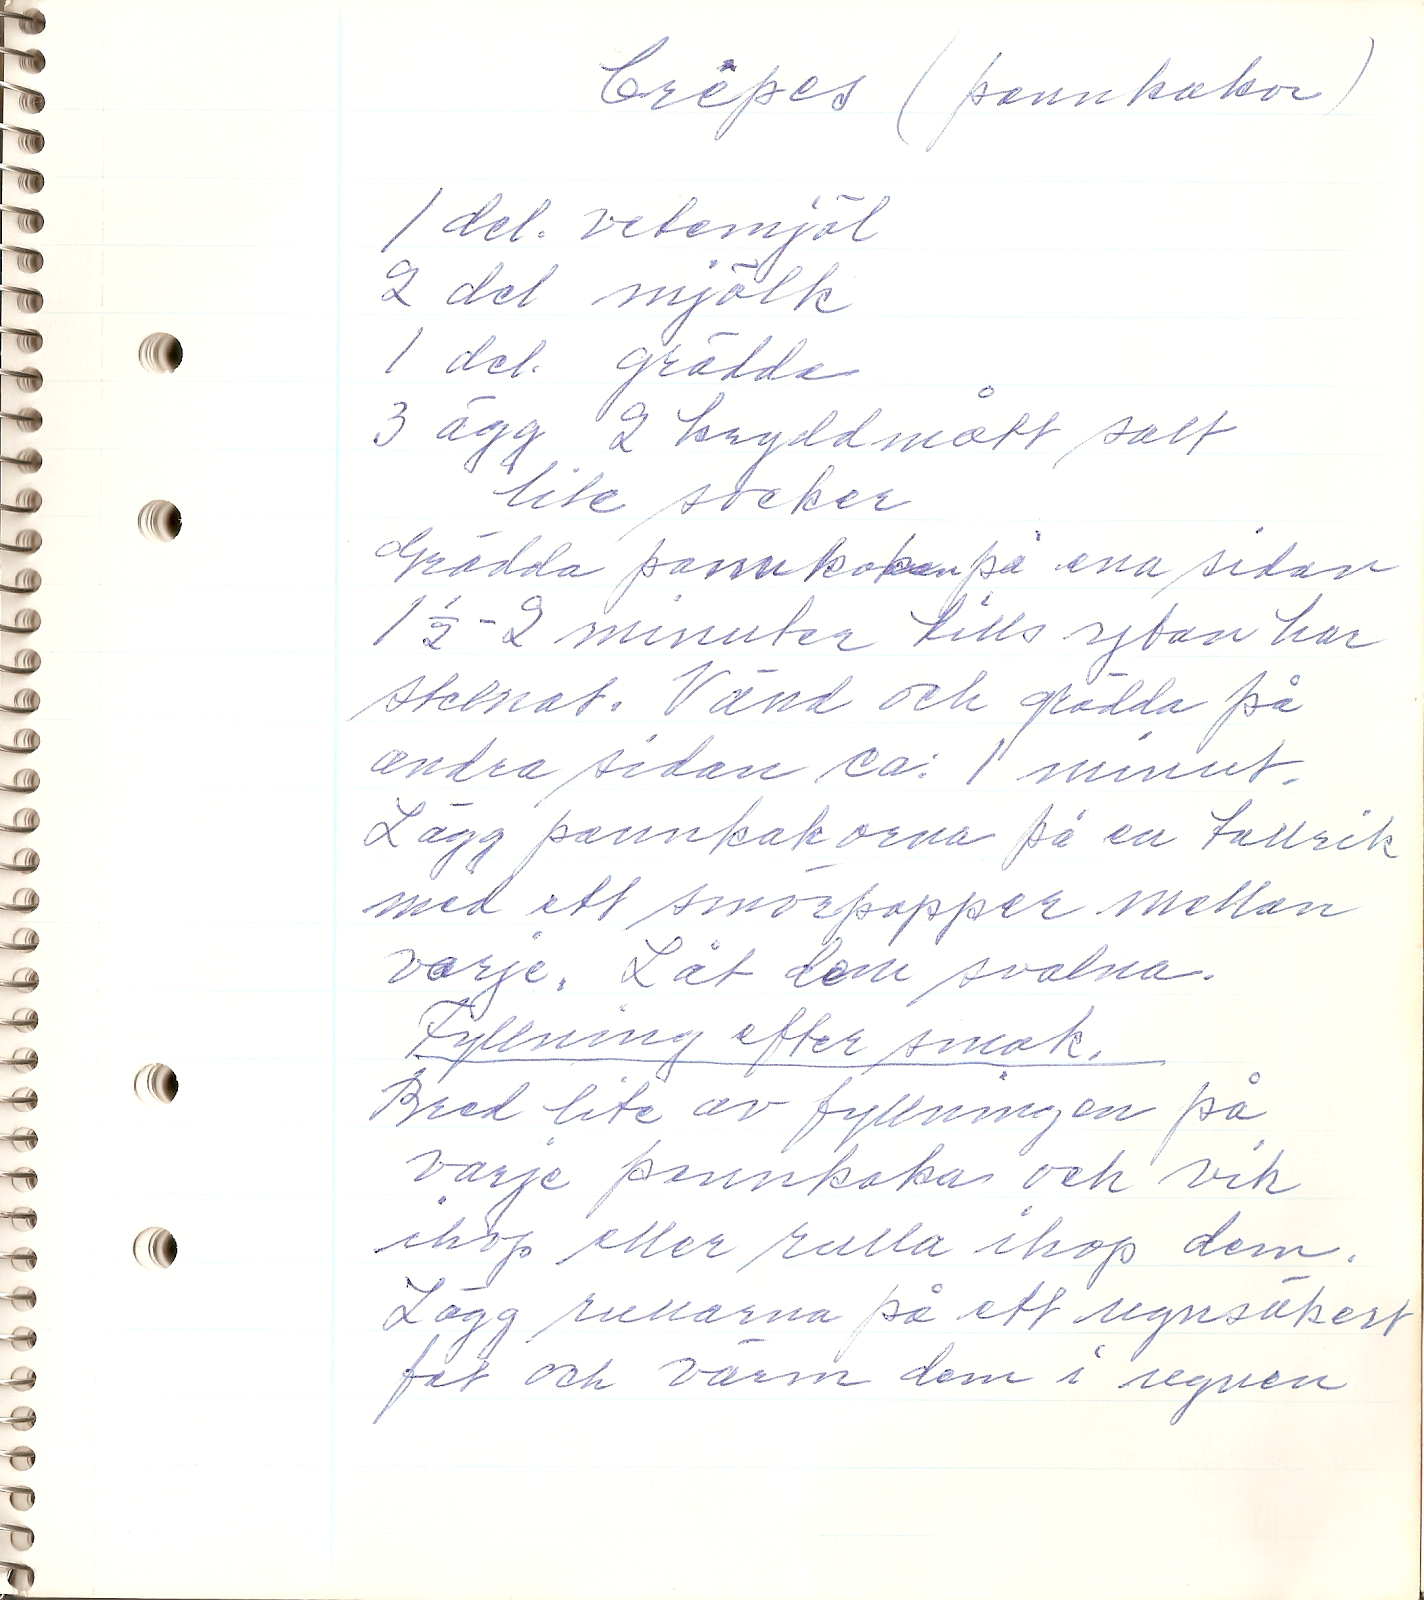 Crêpes (pannkakor)
1 del. vetemjöl
2 del mjölk
1 del. grädde
3 ägg 2 kryddmått salt
lite socker
Grädda pannkakan på ena sidan
1 1/2 - 2 minuter tills ytan har
stelnat. Vänd och grädda på
andra sidan ca: 1 minut.
Lägg pannkakorna på en tallrik
med ett smörpapper mellan
varje. Låt dem svalna.
Fyllning efter smak.
Bred lite av fyllningen på
varje pannkaka och vik
ihop eller rulla ihop dem.
Lägg rullarna på ett ugnsäkert
fat och värm dem i ugnen